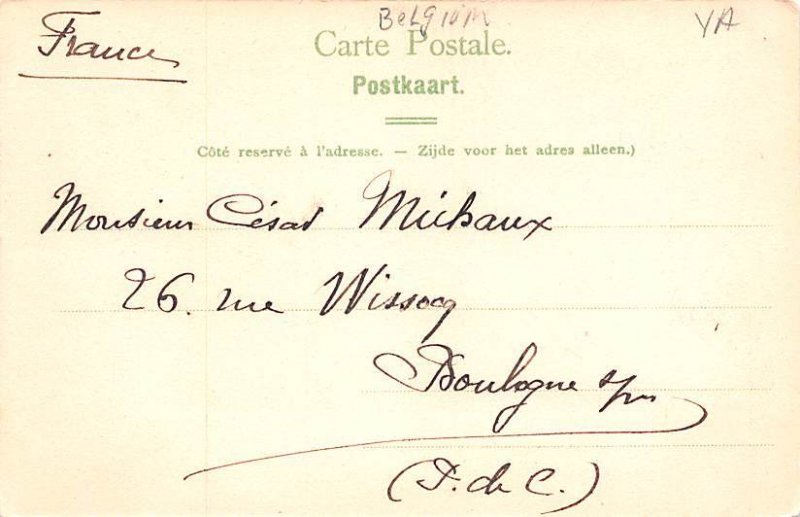 Belgium YA
France
Carte Postale.
Postkaart.
Côté reservé à l'adresse. — Zijde voor het adres alleen.)
Monsieur César Michaux
26. rue Wissocq
Boulogne s/m
(P. de C.)